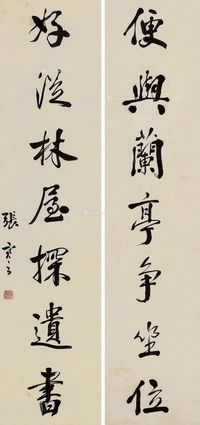 便與蘭亭争坐位
好從林屋探遺書
張寒雲